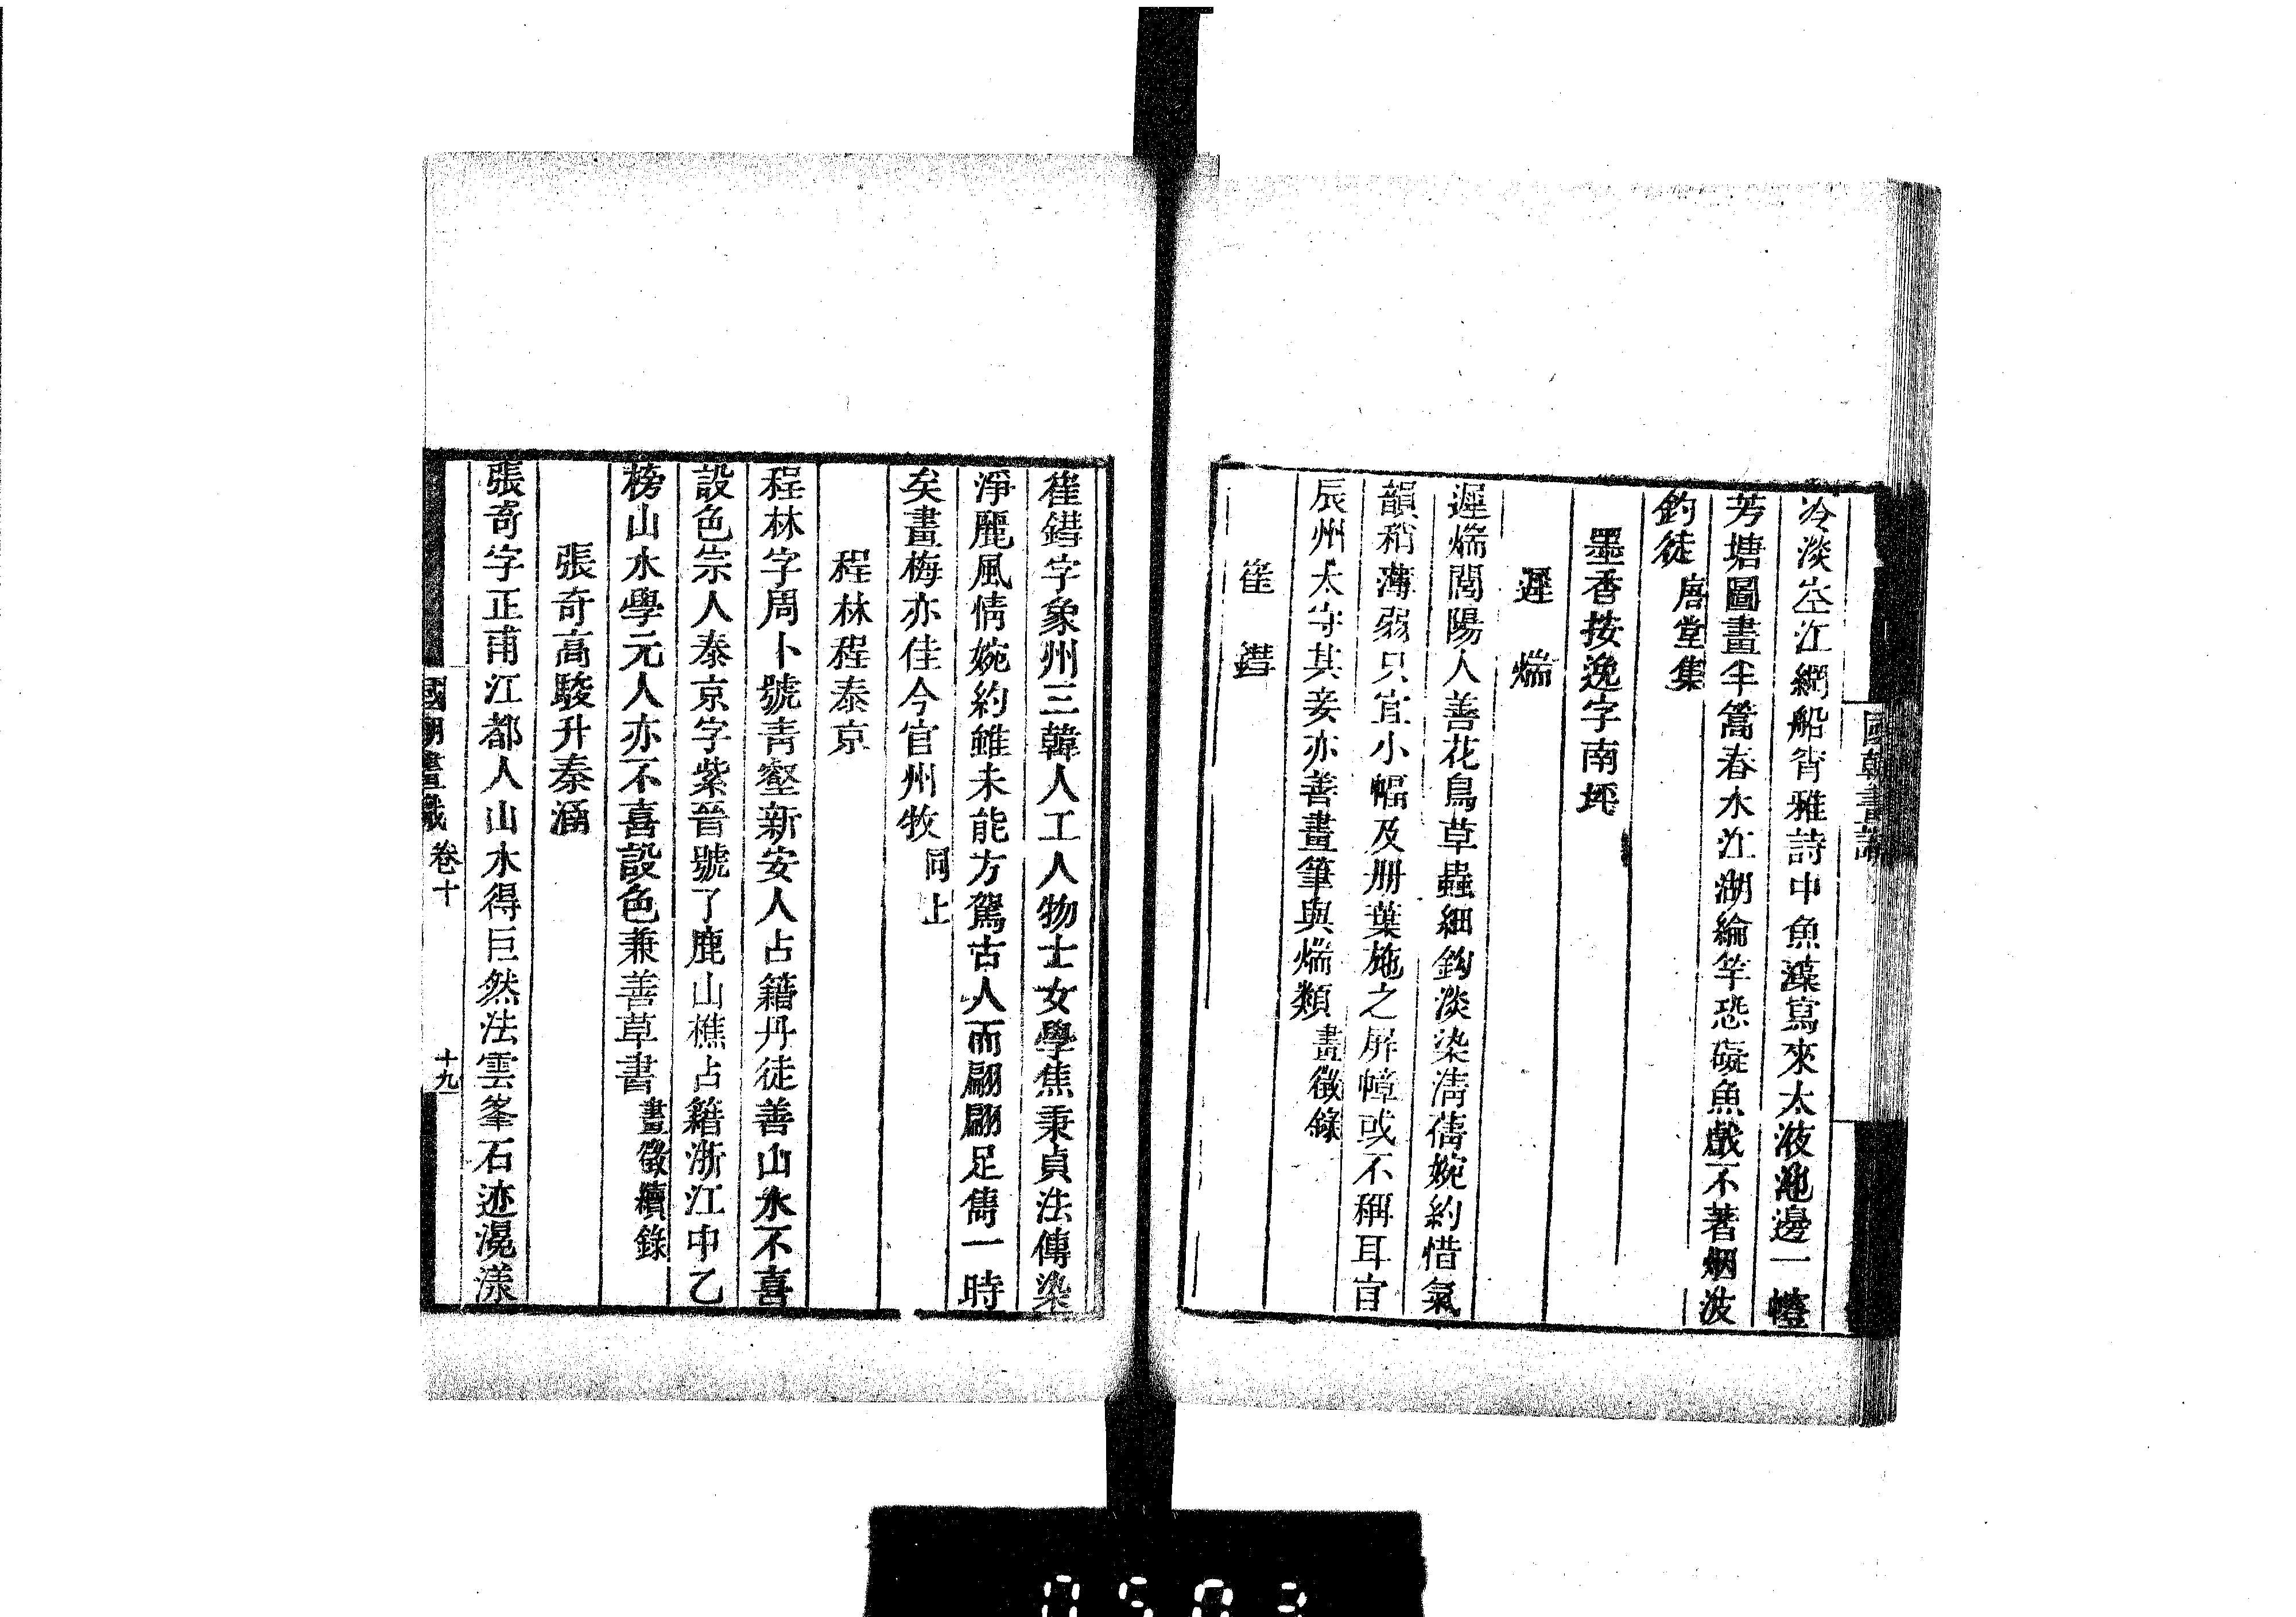 冷淡空江網船背雅詩中魚藻寫來太液池邊一幢
芳塘圖畫半篙春水江湖綸竿恐礙魚戲不著烟波
釣徒唐堂集
墨香按逸字南坪
遲煓
遲煓閭陽人善花鳥草蟲細鉤淡染清蒨婉約惜氣
韻稍薄弱只宜小幅及册葉施之屏幛或不稱耳官
辰州太守其妾亦善畫筆與煓類畫徵錄
崔鏏
崔鏏字象州三韓人工人物士女學焦秉貞法傳染
淨麗風情婉約雖未能方駕古人而翩翩足雋一時
矣畫梅亦佳今官州牧同上
程林程泰京
程林字周卜號青壑新安人占籍丹徒善山水不喜
設色宗人泰京字紫晉號了鹿山樵占籍浙江中乙
榜山水學元人亦不喜設色兼善草書畫徵續錄
張奇高駿升秦涵
張奇字正甫江都人山水得巨然法雲峯石迹滉漾
國朝畫識 卷十 十九